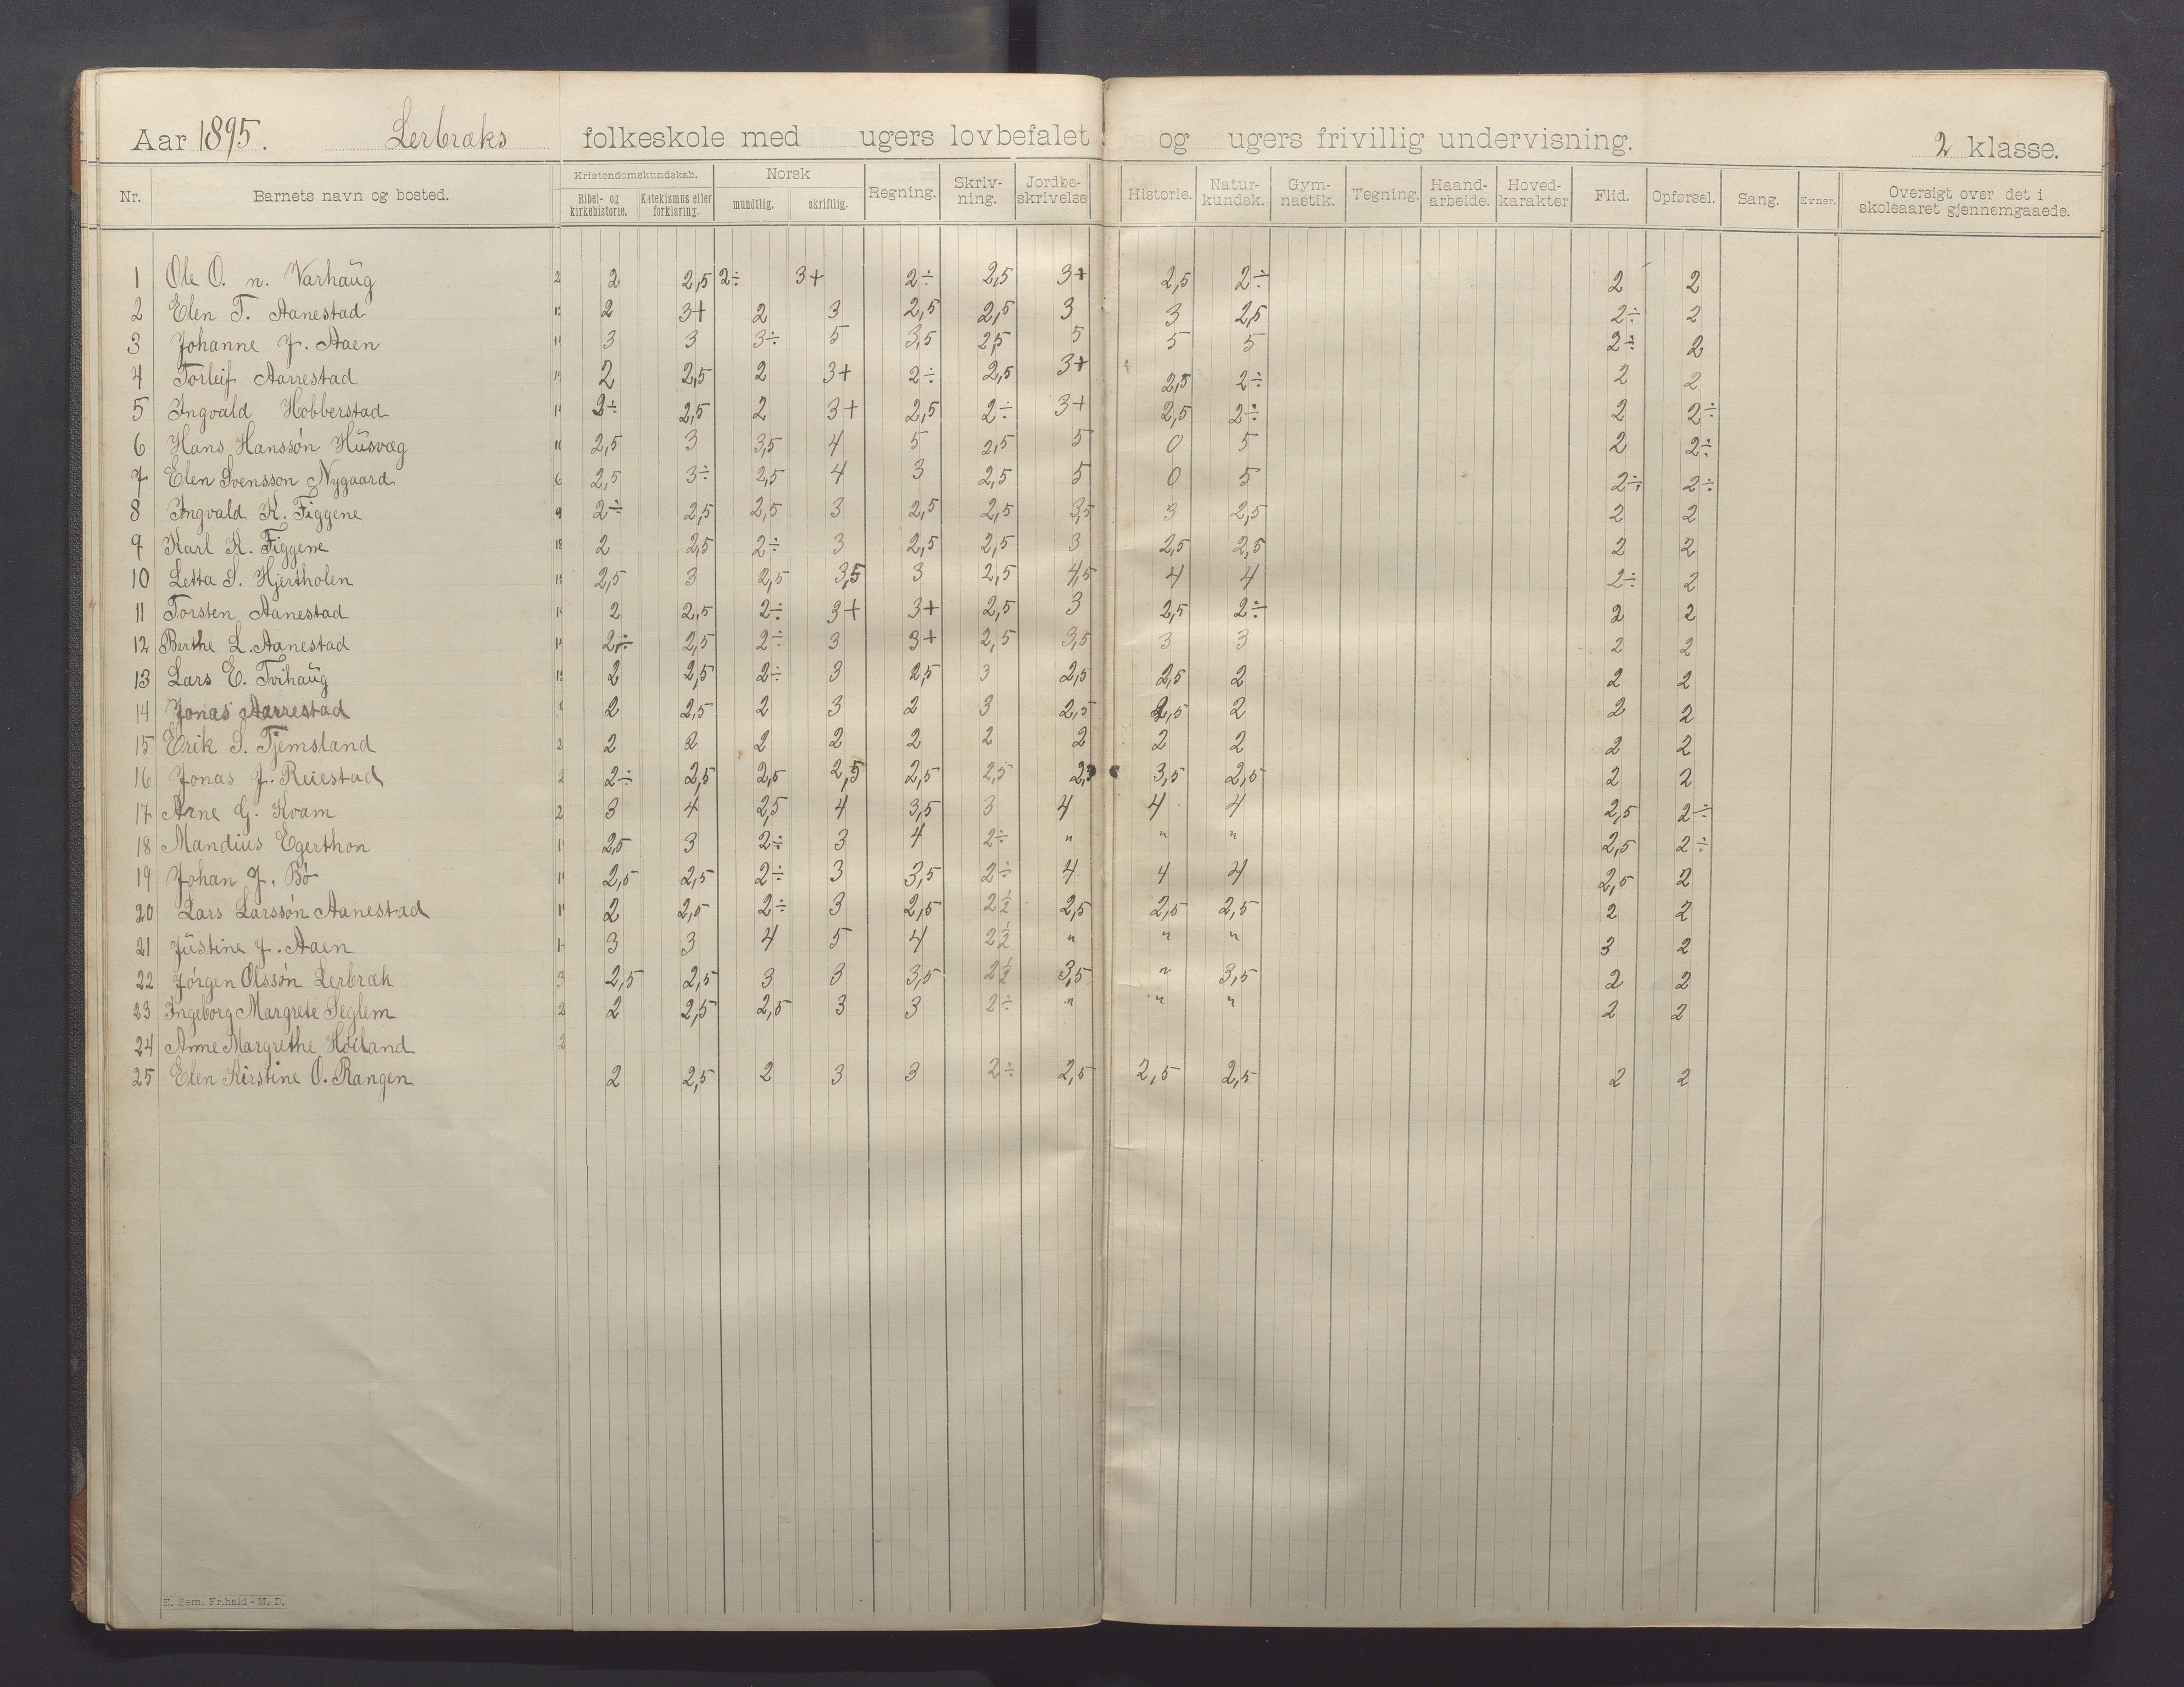 Aar 1895. Lerbræks folkeskole med ugers lovbefalet og ugers frivillig undervisning. 2 klasse.
Nr. Barnets navn og bosted. Kristendomskundskab. Bibel- og kirkehistorie. Katekismus eller forklaring. Norsk mundtlig. skriftlig. Regning. Skriv-ning. Jordbe-skrivelse Historie. Natur-kundsk. Gym-nastik. Tegning. Haand-arbeide. Hoved-karakter Flid. Opførsel. Sang. Evner. Oversigt over det i skoleaaret gjennemgaaede.
1 Ole O. n. Varhaug 2 2 2,5 2÷ 3+ 2÷ 2,5 3+ 2,5 2÷ 2 2
2 Elen T. Aanestad 2 3+ 2 3 2,5 2,5 3 3 2,5 2÷ 2
3 Johanne J. Aaen 3 3 3÷ 5 3,5 2,5 5 5 5 2÷ 2
4 Torleif Aarrestad 2 2,5 2 3+ 2÷ 2,5 3+ 2,5 2÷ 2 2
5 Ingvald Hobberstad 2÷ 2,5 2 3+ 2,5 2÷ 3+ 2,5 2÷ 2 2÷
6 Hans Hanssón Husvæg 2,5 3 3,5 4 5 2,5 5 0 5 2 2÷
7 Elen Svensson Nygaard 6 2,5 3÷ 2,5 4 3 2,5 5 0 5 2÷ 2÷
8 Ingvald K. Figgene 9 2÷ 2,5 2,5 3 2,5 2,5 3,5 3 2,5 2 2
9 Karl K. Figgene 18 2 2,5 2÷ 3 2,5 2,5 3 2,5 2,5 2 2
10 Letta S. Hjertholen 2,5 3 2,5 3,5 3 2,5 4,5 4 4 2÷ 2
11 Torsten Aanestad 2 2,5 2÷ 3+ 3+ 2,5 3 2,5 2÷ 2 2
12 Berthe L. Aanestad 2÷ 2,5 2÷ 3 3+ 2,5 3,5 3 3 2 2
13 Lars E. Tvihaug 2 2,5 2÷ 3 2,5 3 2,5 2,5 2 2 2
14 Jonas Aarrestad 2 2,5 2 3 2 3 2,5 2,5 2 2 2
15 Erik S. Tjemsland 2 2 2 2 2 2 2 2 2 2 2 2
16 Jonas J. Reiestad 2 2÷ 2,5 2,5 2,5 2,5 2,5 3,5 2,5 2 2
17 Arne G. Kvam 2 3 4 2,5 4 3,5 3 4 4 4 2,5 2÷
18 Mandius Egerthon 2,5 3 2÷ 3 4 2÷ " " " 2,5 2÷
19 Johan J. Bó 2,5 2,5 2÷ 3 3,5 2÷ 4 4 4 2,5 2
20 Lars Larssón Aanestad 2 2,5 2÷ 3 2,5 2½ 2,5 2,5 2,5 2 2
21 Justine J. Aaen 3 3 4 5 4 2½ " " " 3 2
22 Jórgen Olssón Lerbræk 3 2,5 2,5 3 3 3,5 2½ 3,5 " 3,5 2 2
23 Ingeborg Margrete Seglem 2 2 2,5 2,5 3 3 2÷ " " " 2 2
24 Anne Margrethe Hóiland 2
25 Elen Kirstine O. Rangen 2 2,5 2 3 3 2÷ 2,5 2,5 2,5 2 2
E. Sem. Fr.hald - M. D.